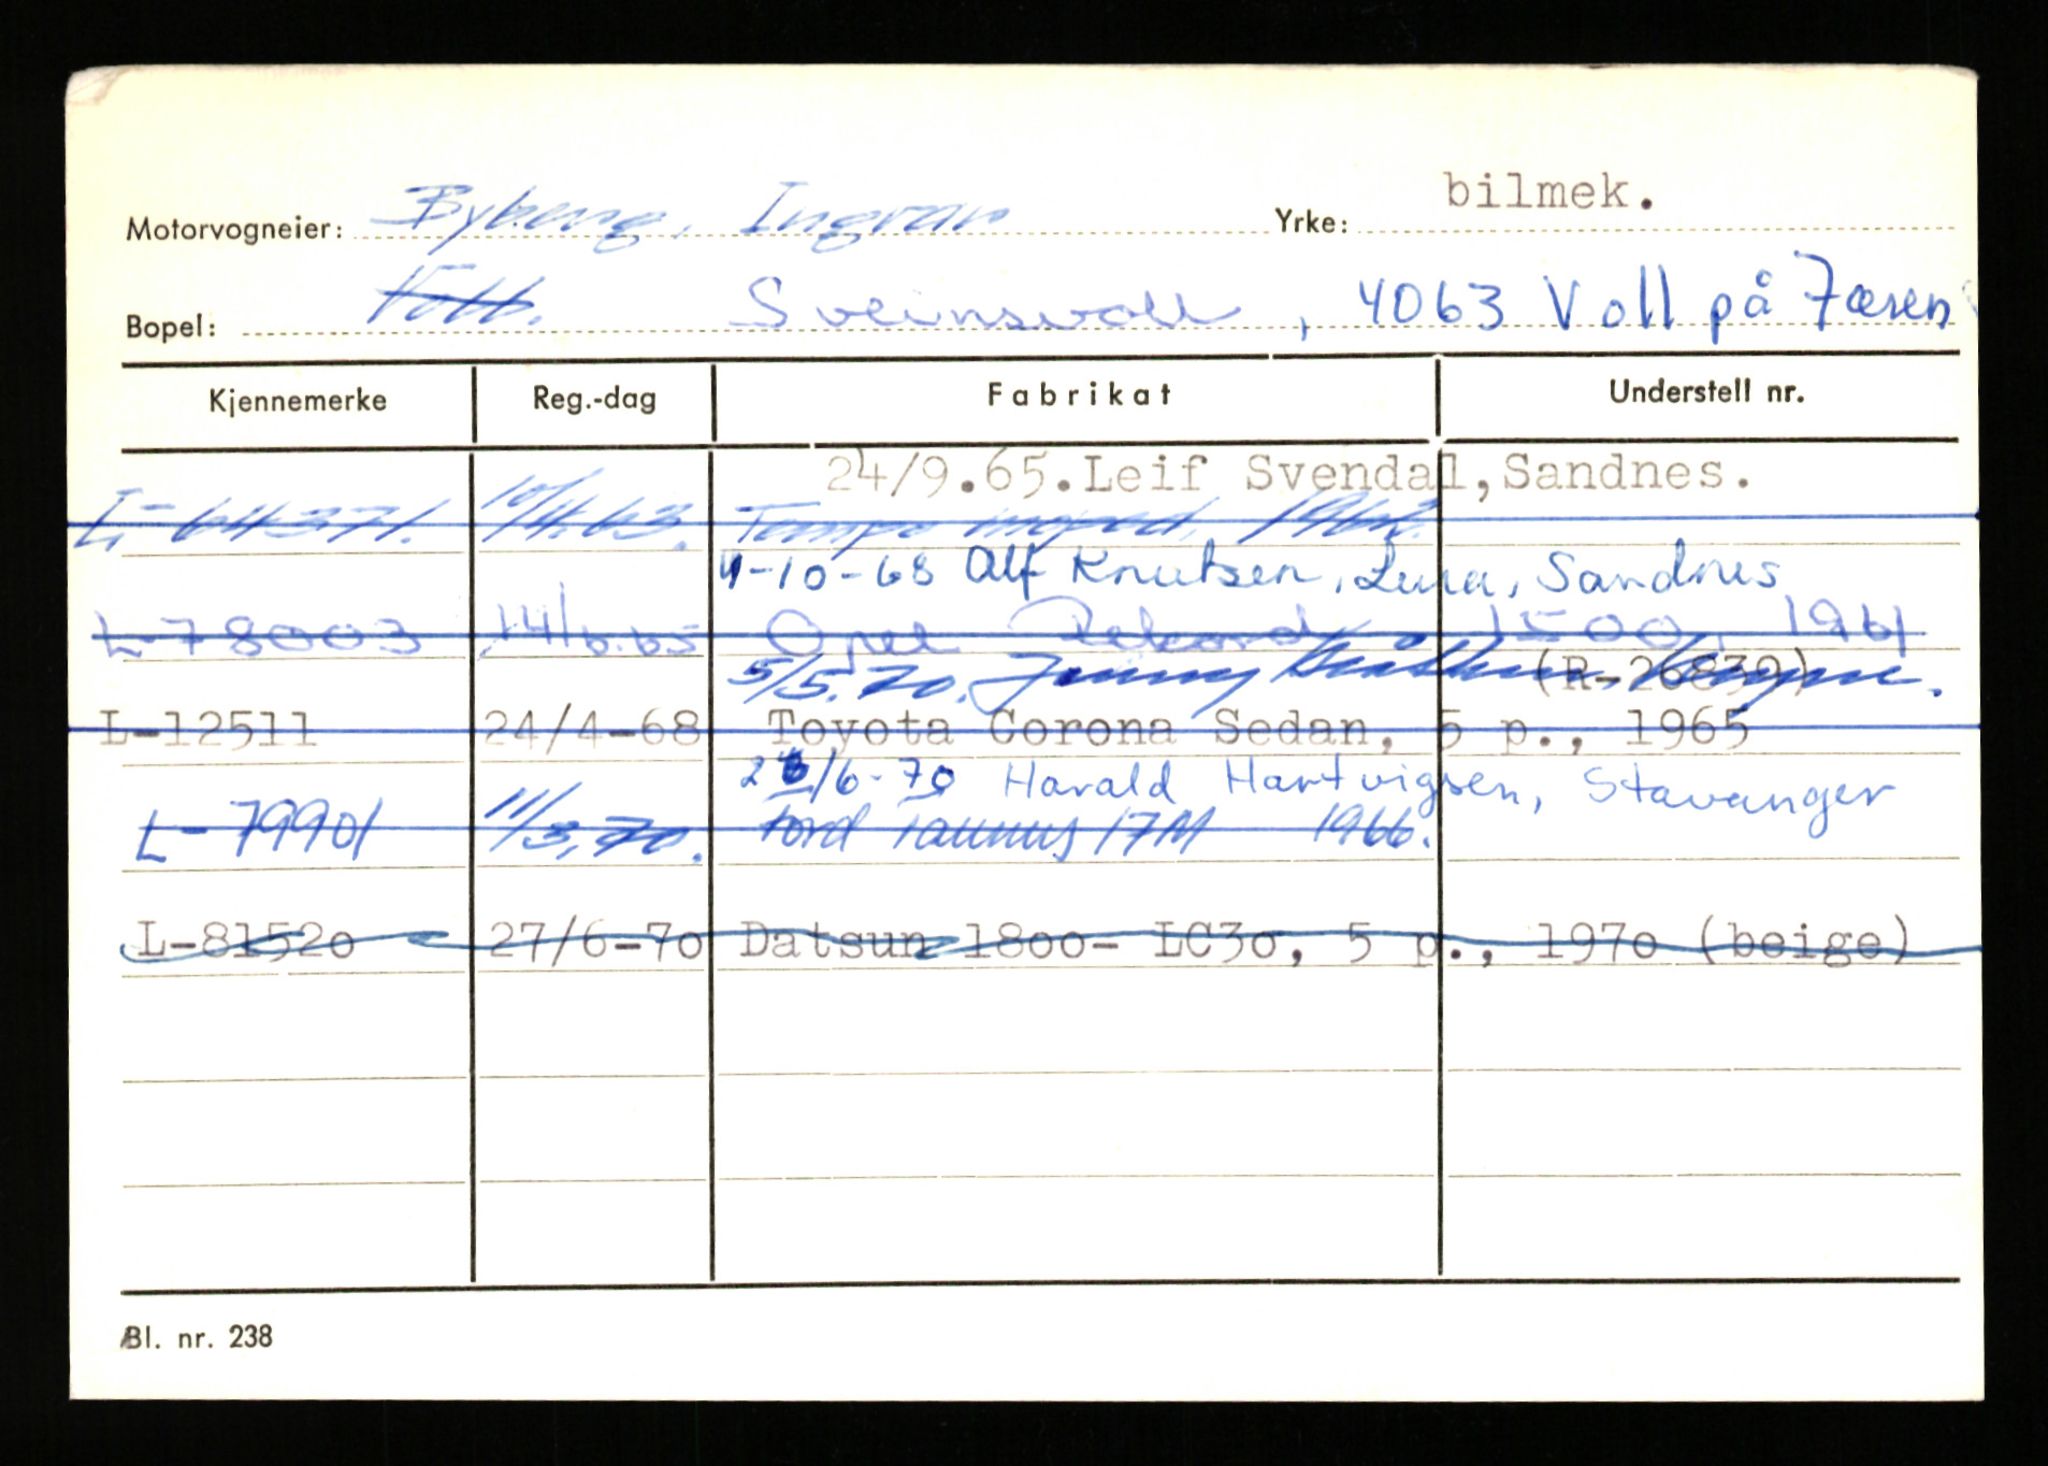 Motorvogneier: Byberg, Ingvar Yrke: bilmek.
Bopel: Voll. Sveinsvoll, 4063 Voll på Jæren
Kjennemerke Reg.-dag Fabrikat Understell nr.
24/9.65. Leif Svendal, Sandnes.
L-64371. 10/4.63. Tempo moped, 1962.
4-10-68 Alf Knutsen, Lura, Sandnes
L-78003 14/6.65 Opel Rekord 1500, 1961
5/5.70. Jenny (R-26839)
L-12511 24/4-68 Toyota Corona Sedan, 5 p., 1965
26/6-70 Harald Hartvigsen, Stavanger
L-79901 11/3.70. Ford Taunus 17M 1966.
L-81520 27/6-70 Datsun 1800- LC30, 5 p., 1970 (beige)
Bl. nr. 238